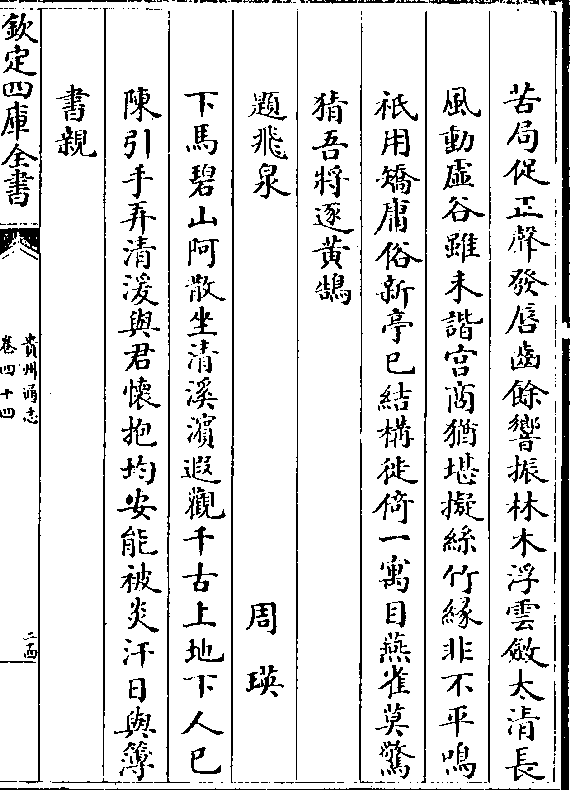 苦局促正聲發唇齒餘響振林木浮雲斂太清長
風動虛谷雖未諧宮商猶堪擬絲竹緣非不平鳴
祇用矯庸俗新亭已結構徙倚一寓目燕雀莫驚
猜吾將逐黃鵠
題飛泉 周瑛
下馬碧山阿散坐清溪濵遐觀千古上地下人已
陳引手弄清湲與君懷抱均安能被炎汗日與簿
書親
欽定四庫全書
貴州通志
卷四十四
二西